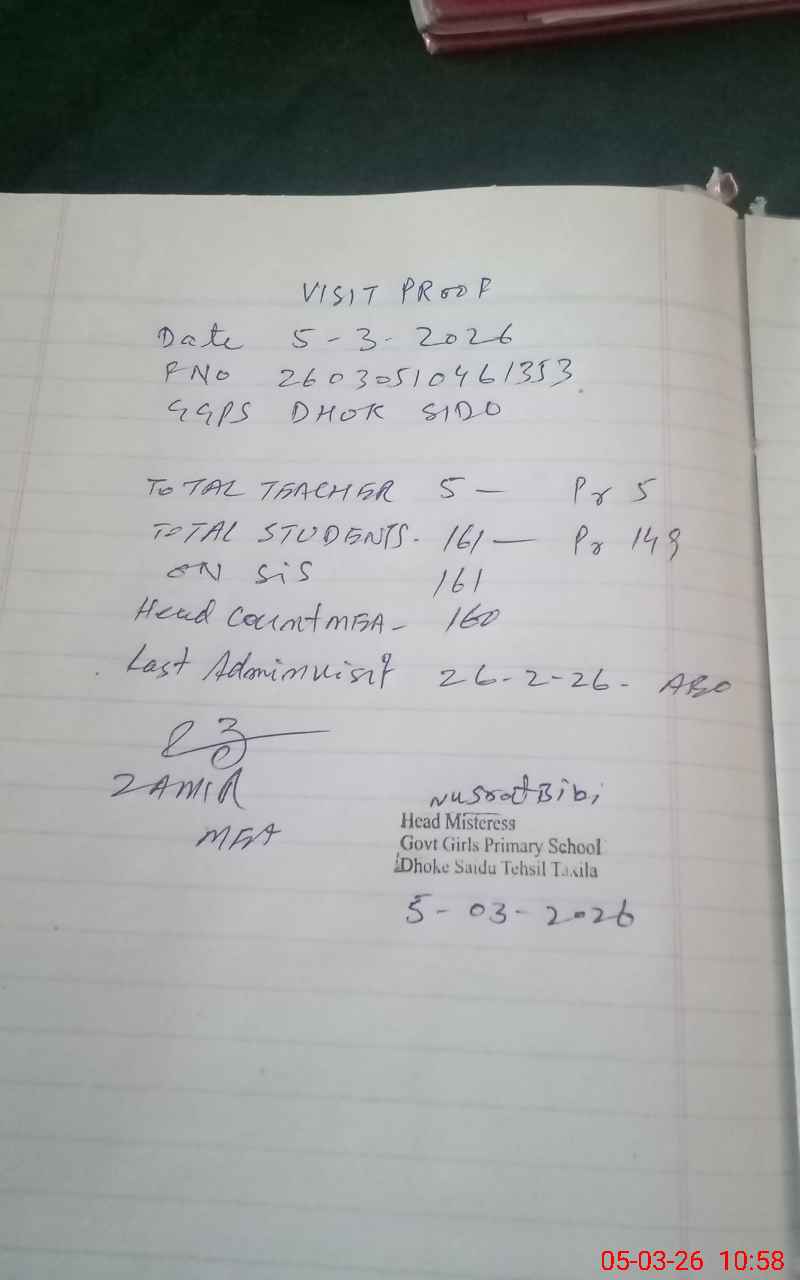 VISIT PROOF
Date 5-3-2026
FNO 26030510461353
GGPS DHOK SIDO
TOTAL TEACHER 5 - Pr 5
TOTAL STUDENTS. 161 - Pr 149
ON SIS 161
Head Count MEA - 160
Last Admin visit 26-2-26 - AEO
ZAMIR
MEA
Nusrat Bibi
Head Misteress
Govt Girls Primary School
Dhoke Saidu Tehsil Taxila
5-03-2026
05-03-26 10:58